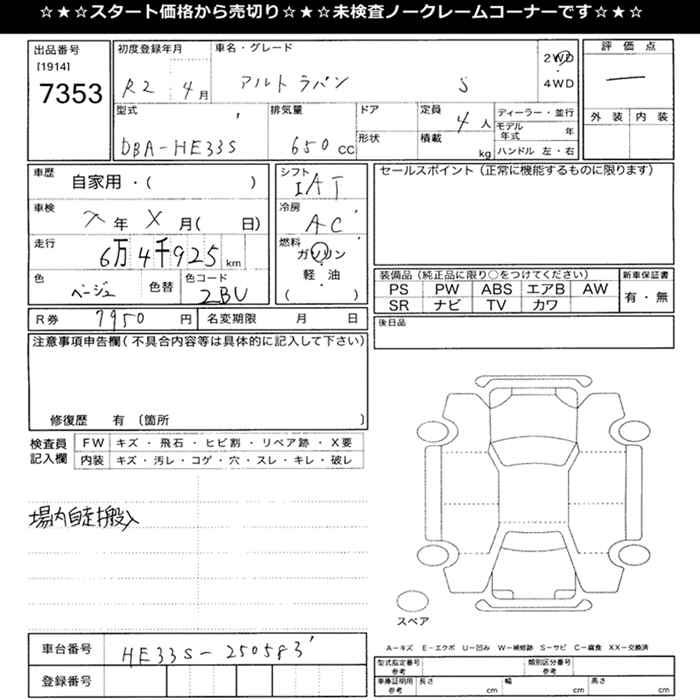 ☆★☆スタート価格から売切り☆★☆未検査ノークレームコーナーです☆★☆
出品番号
[1914]
7353
初度登録年月
R2 4月
車名・グレード
アルトラパン S
2WD
4WD
評価点
ー
外装 内装
型式
DBA-HE33S
排気量
650cc
ドア
形状
定員
4人
積載
kg
ディーラー・並行
モデル年式 年
ハンドル 左・右
車歴
自家用・( )
車検
年 X 月( 日)
走行
6万4千925km
色
ベージュ
色替
色コード
ZBU
シフト
IAT
冷房
AC
燃料
ガソリン
・
軽油
( )
セールスポイント(正常に機能するものに限ります)
装備品(純正品に限り○をつけてください)
PS PW ABS エアB AW
SR ナビ TV カワ
新車保証書
有・無
R券 7950円
名変期限 月 日
後日品
注意事項申告欄(不具合内容等は具体的に記入して下さい)
修復歴 有(箇所 )
検査員記入欄
FW キズ・飛石・ヒビ割・リペア跡・X要
内装 キズ・汚レ・コゲ・穴・スレ・キレ・破レ
場内自走搬入
スペア
A－キズ E－エクボ U－凹み W－補修跡 S－サビ C－腐食 XX－交換済
車台番号 HE33S-250583
登録番号
型式指定番号参考
類別区分番号参考
車庫証明用参考 長さ cm 幅 cm 高さ cm